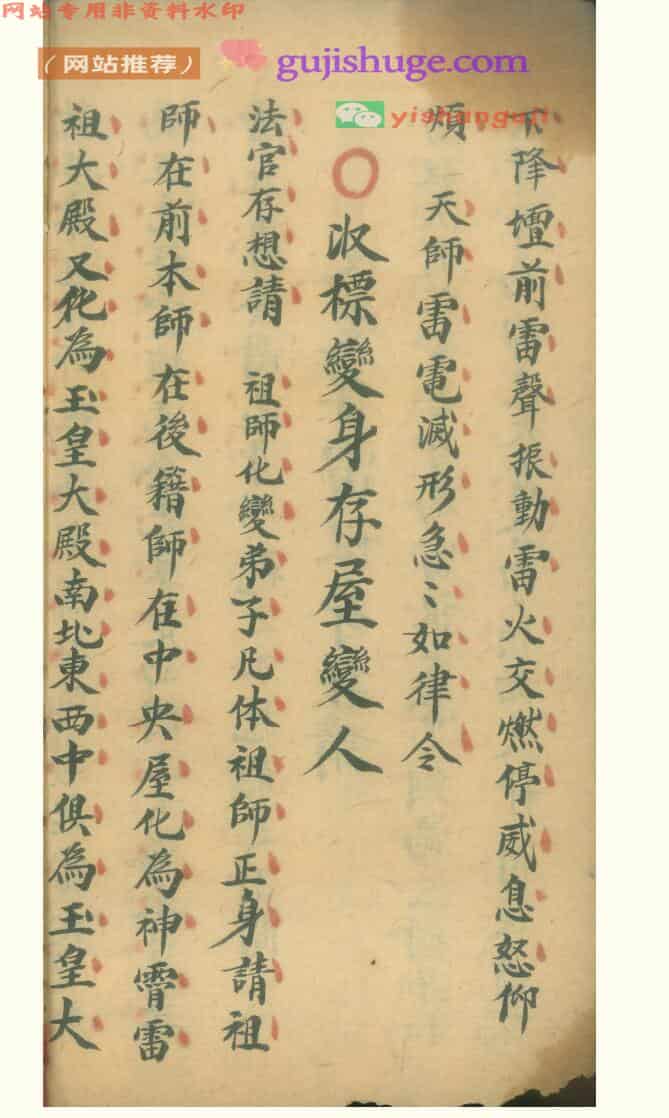 网站专用非资料水印
（网站推荐） gujishuge.com
yishunguji
下降壇前雷聲振動雷火交燃停威息怒仰
煩 天師雷電滅形急〻如律令
○收標變身存屋變人
法官存想請 祖師化變弟子凡体祖師正身請祖
師在前本師在後籍師在中央屋化為神霄雷
祖大殿又化為玉皇大殿南北東西中俱為玉皇大